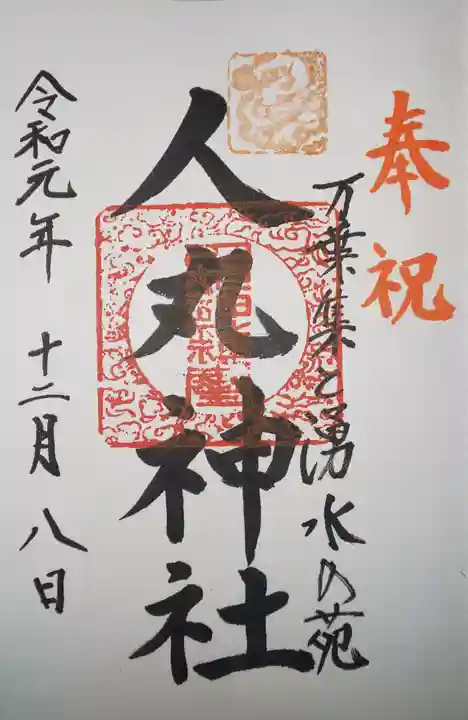 奉祝
万葉集と湧水の苑
人丸神社
令和元年 十二月八日